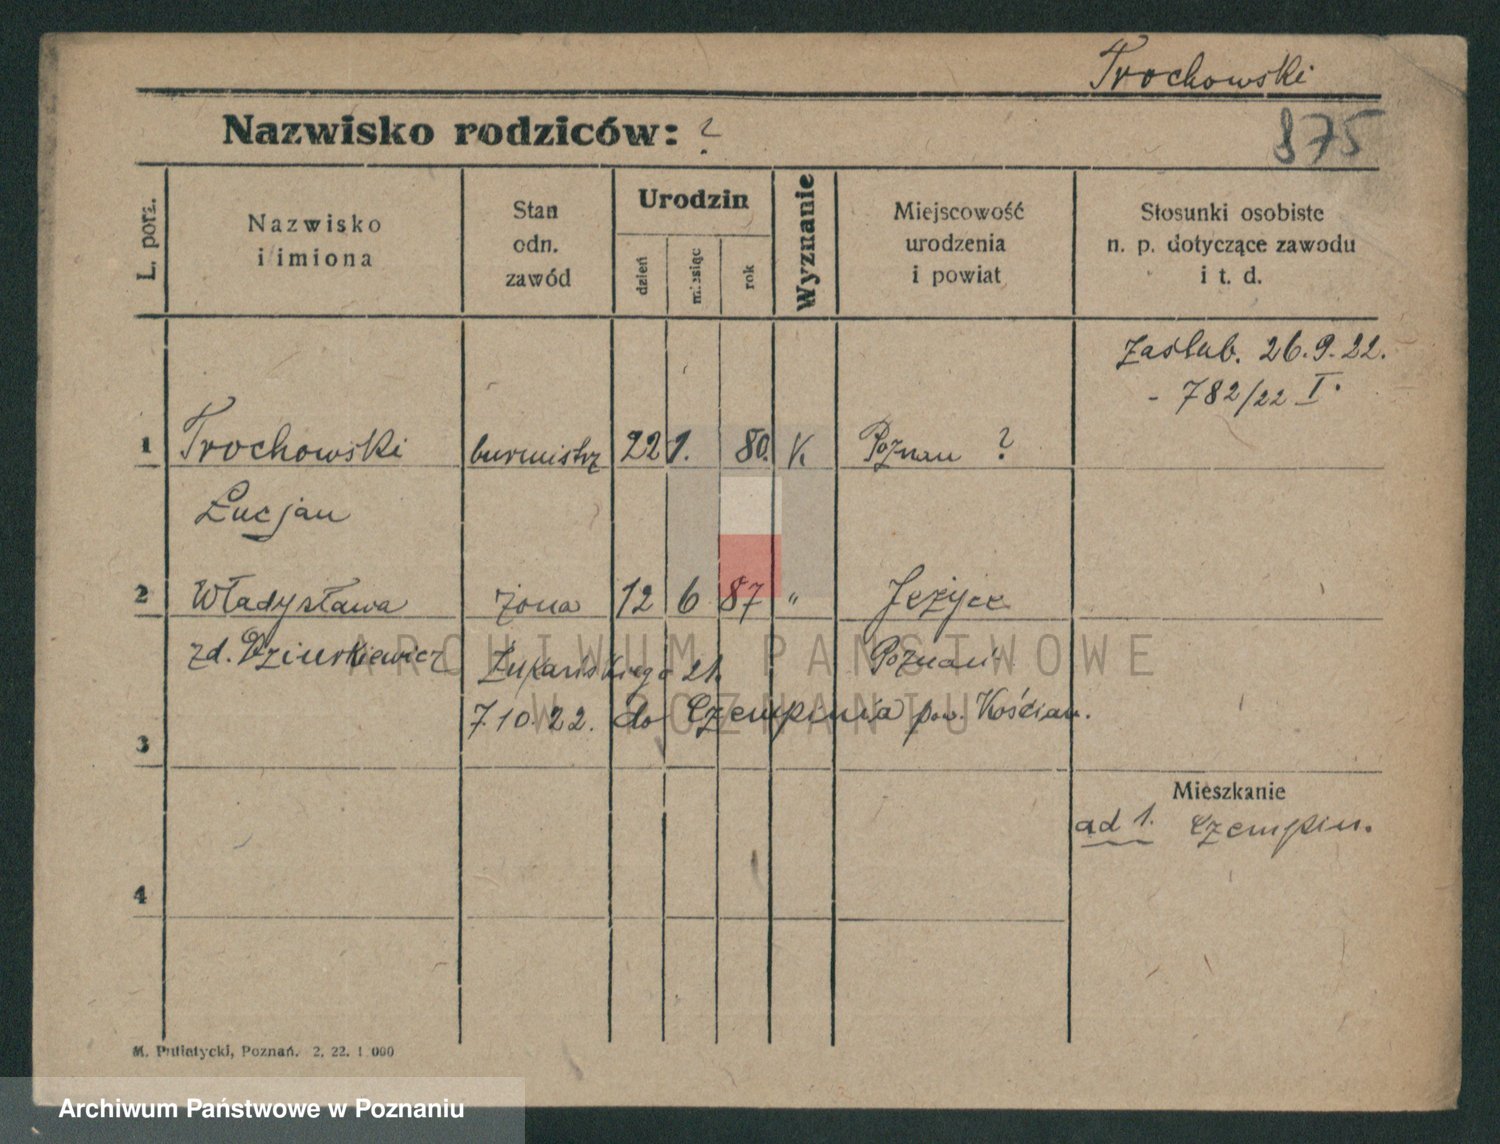 Trochowski
Nazwisko rodziców: ?
875
L. porz.
Nazwisko
i imiona
Stan
odn.
zawód
Urodzin
dzień
miesiąc
rok
Wyznanie
Miejscowość
urodzenia
i powiat
Stosunki osobiste
n. p. dotyczące zawodu
i t. d.
Zaślub. 26.9.22.
- 782/22 I.
1 Trochowski burmistrz 22 1. 80. K. Poznań ?
Łucjan
2 Władysława żona 12 6 87 " Jeżyce
zd. Dziurkiewicz Łukasińskiego 21. Poznań
7.10.22. do Czempinia pow. Kościan.
3
Mieszkanie
ad 1. Czempiń.
4
M. Putiatycki, Poznań. 2. 22. 1 000
ARCHIWUM PAŃSTWOWE
W POZNANIU
Archiwum Państwowe w Poznaniu